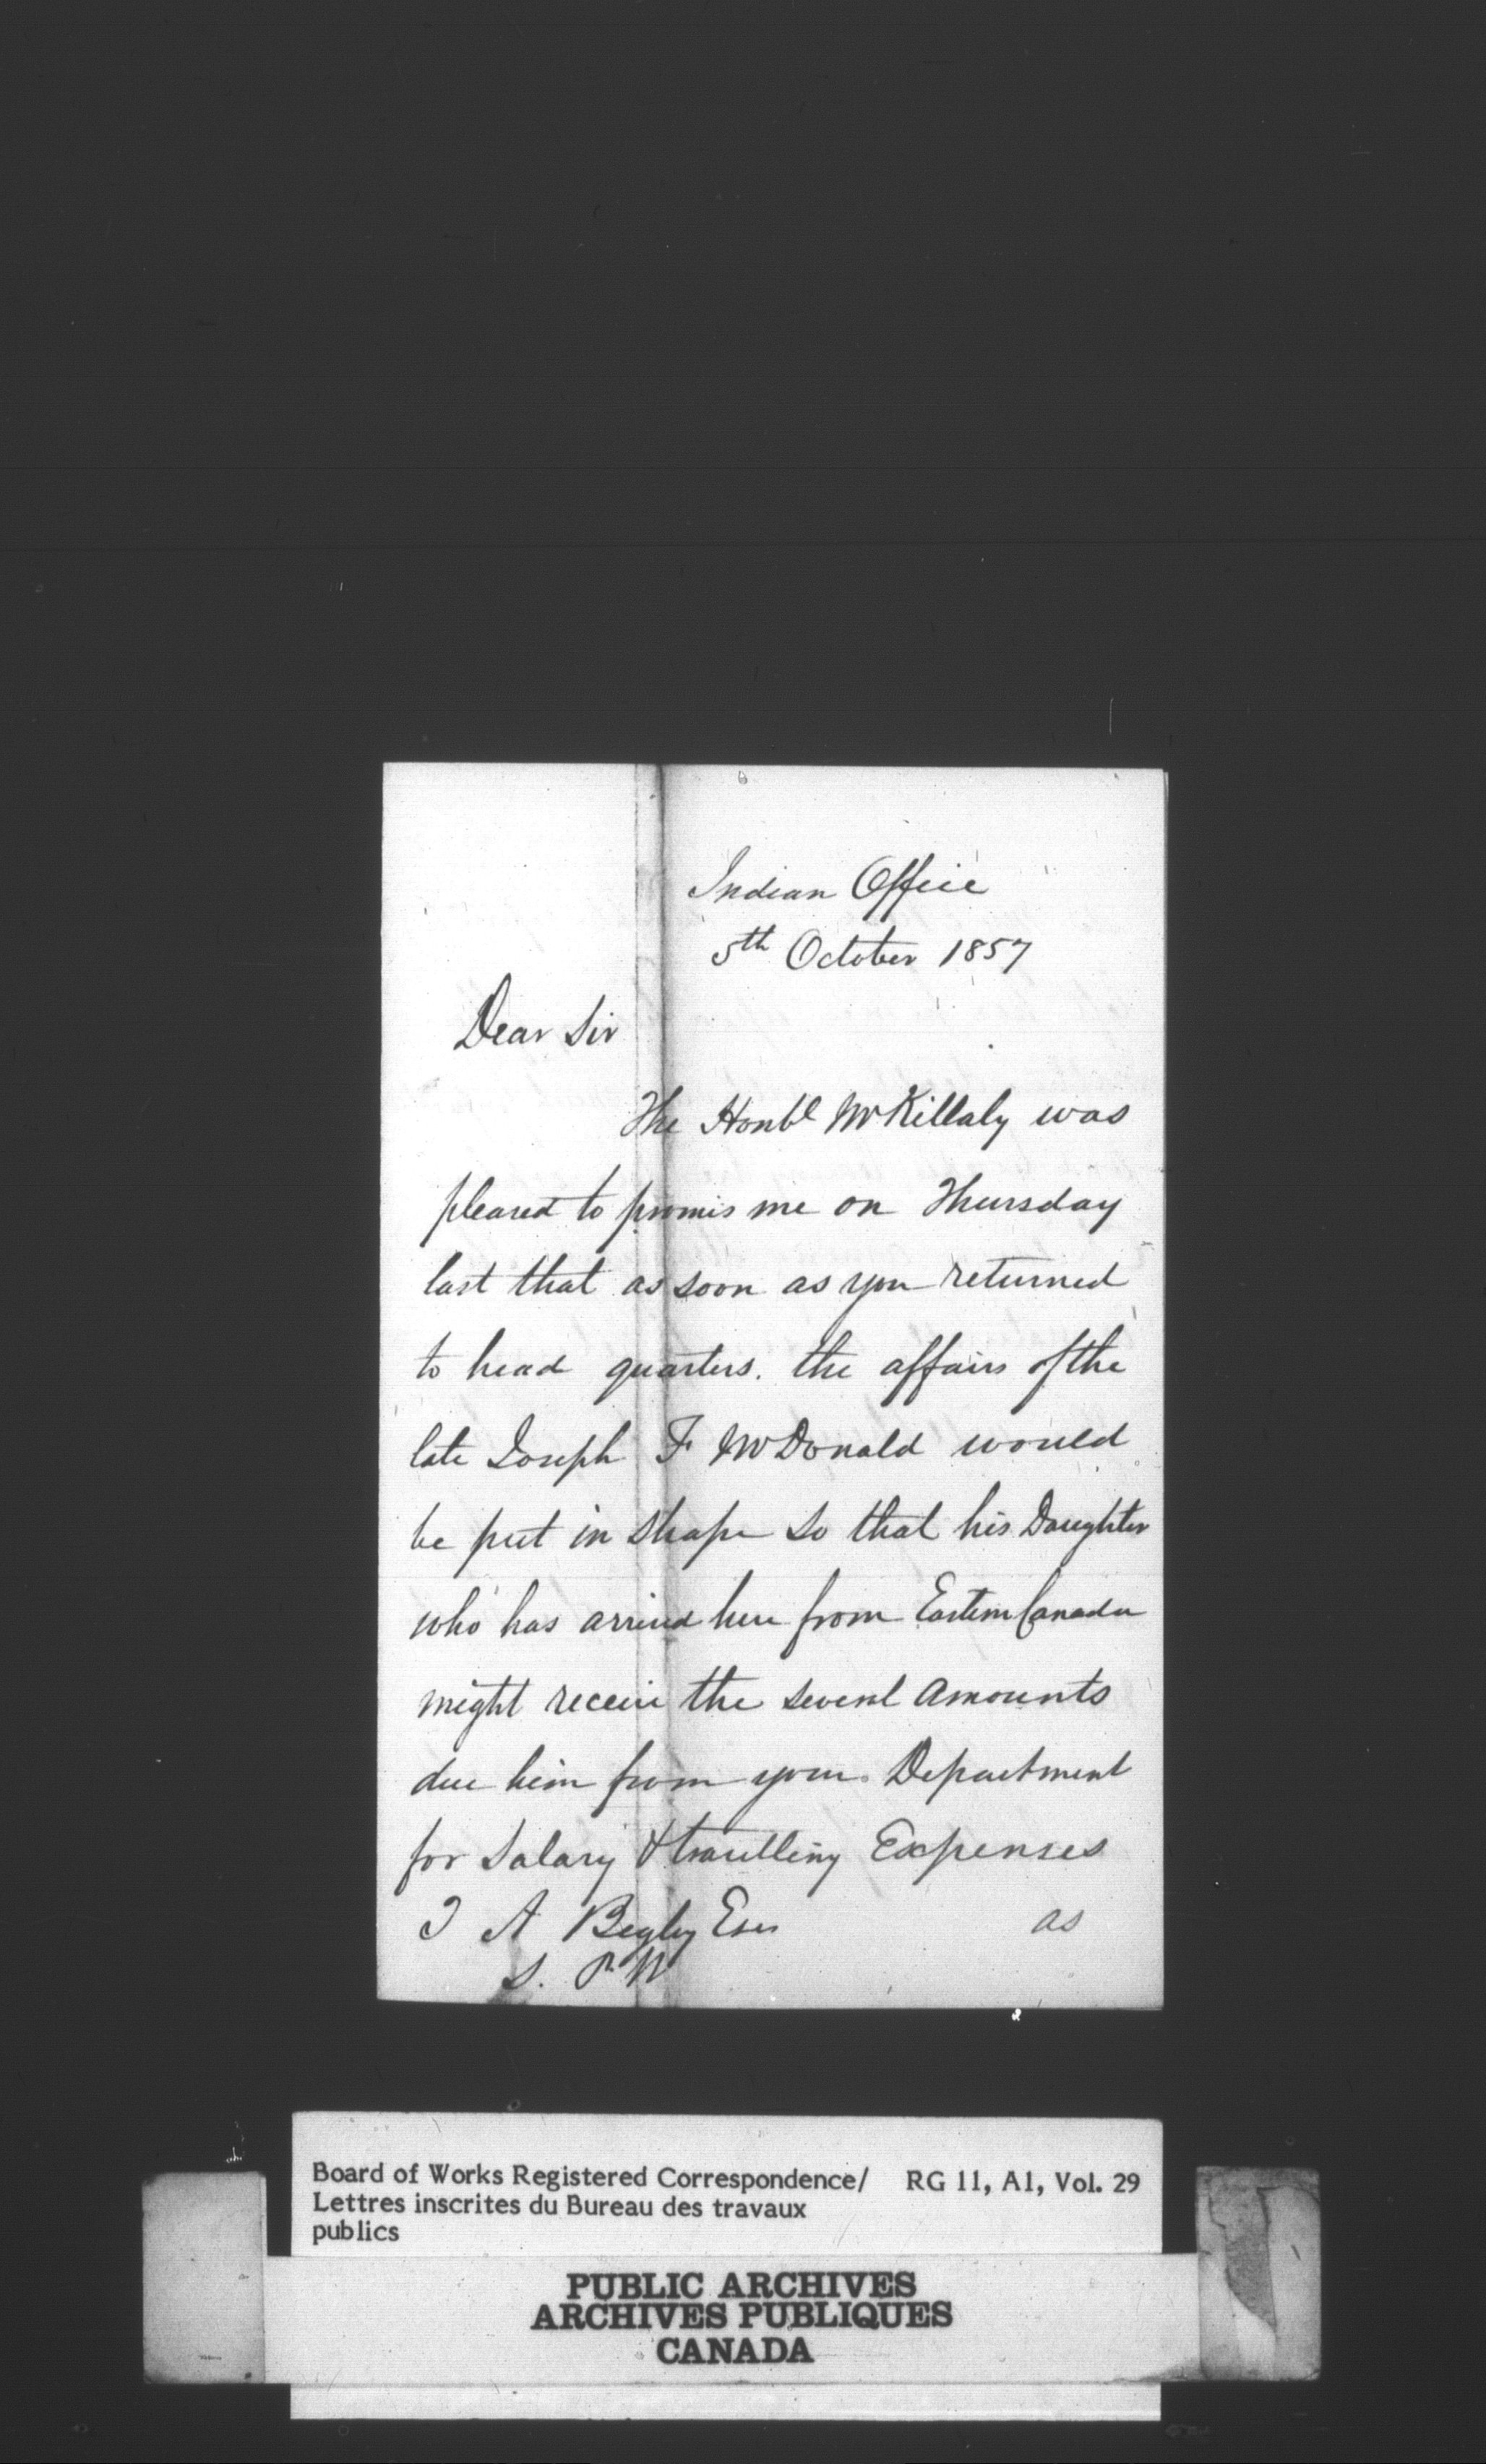 Indian Office
5th October 1857
Dear Sir
The Honbl Mr Killaly was
pleased to promis me on Thursday
last that as soon as you returned
to head quarters. the affairs of the
late Joseph F McDonald would
be put in shape so that his Daughter
who has arrived here from Eastern Canada
might receive the several amounts
due him from your Department
for Salary & travelling Expenses
T A Begly Esqr as
S. P. W
Board of Works Registered Correspondence/ RG 11, A1, Vol. 29
Lettres inscrites du Bureau des travaux
publics
PUBLIC ARCHIVES
ARCHIVES PUBLIQUES
CANADA